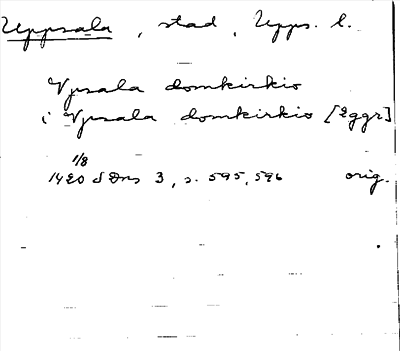 Uppsala, stad, Upps. l.
Vpsala domkirkio
i Vpsala domkirkio [Eggr]
1/8
1420 SDns 3, s. 595, 596 orig.